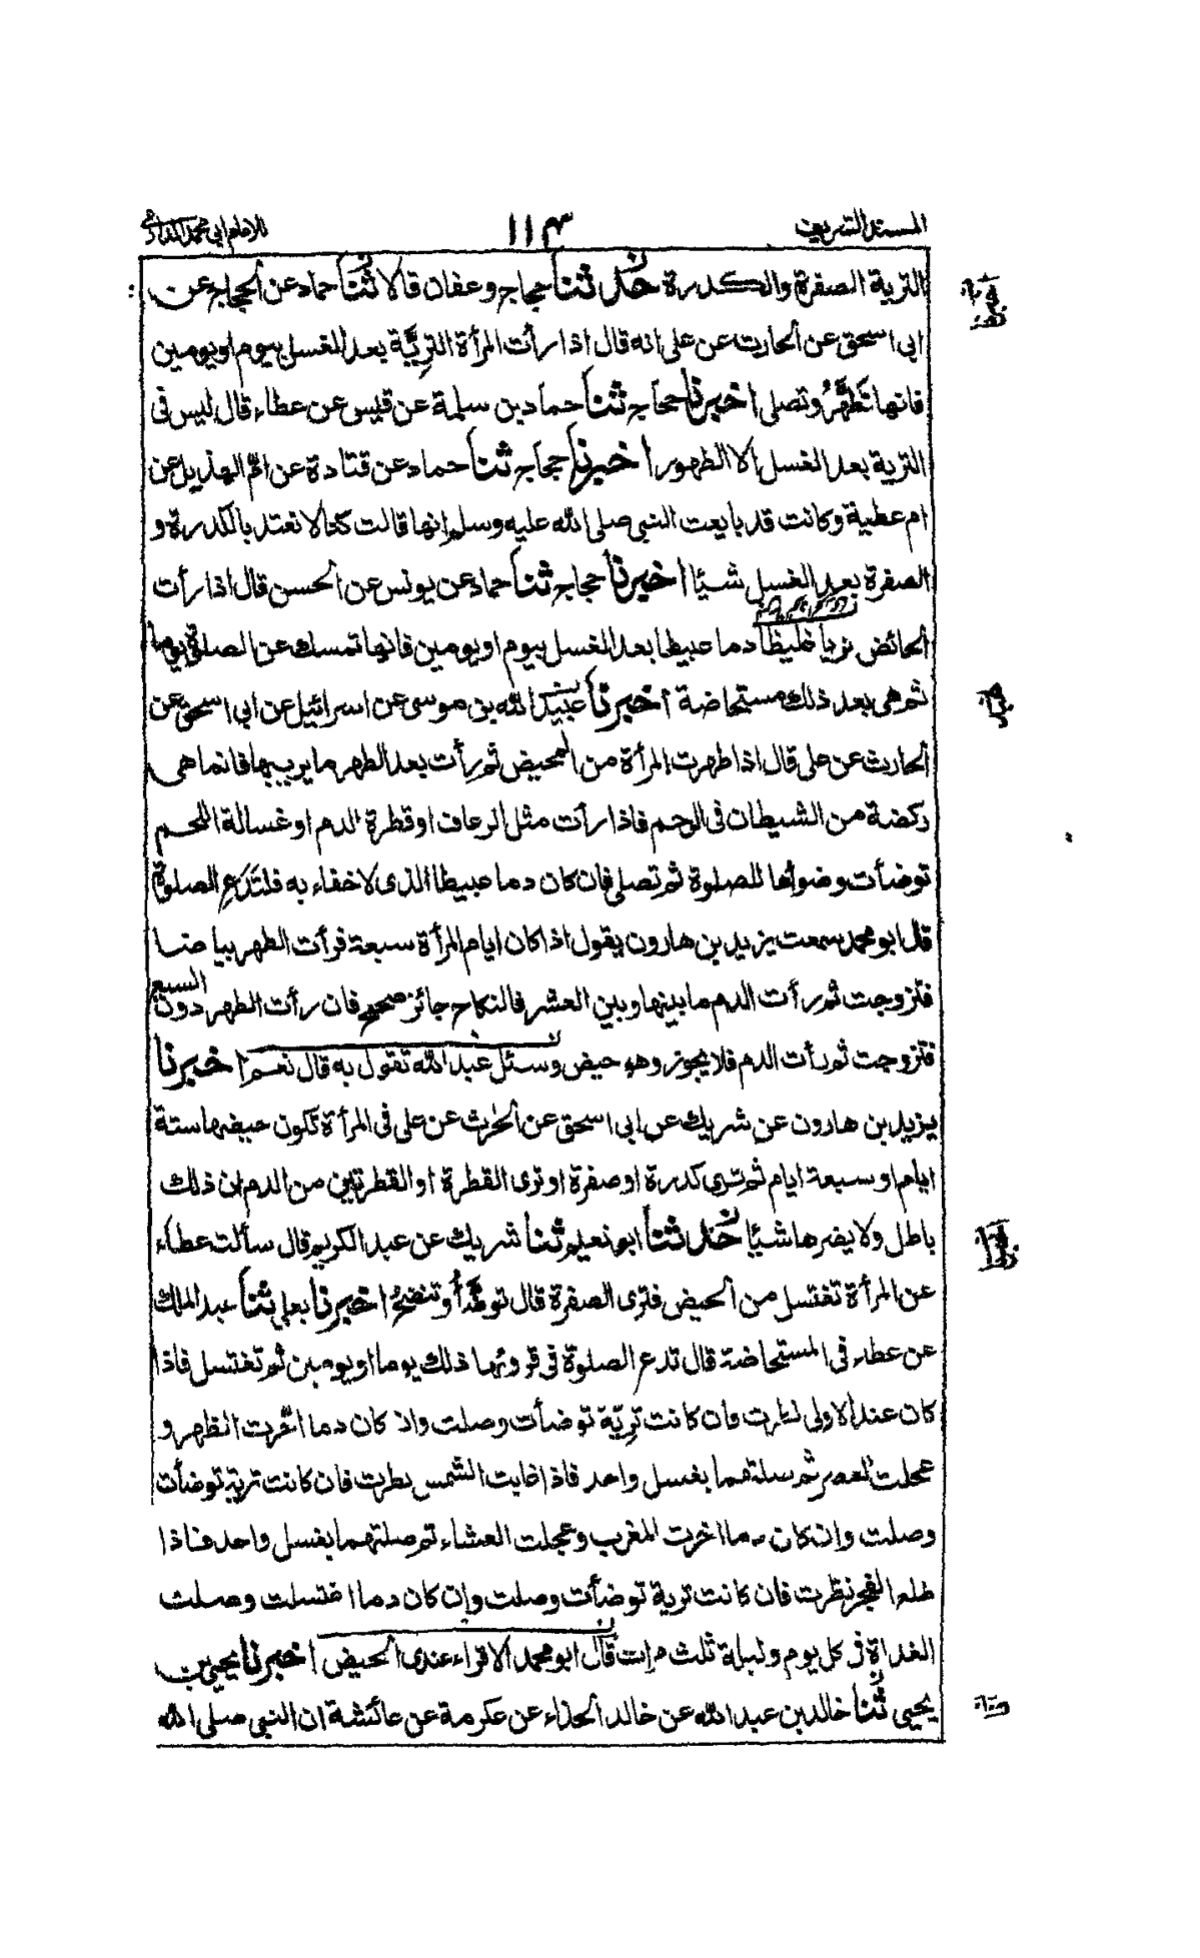 المسند الشريف ١١٣ للامام ابي محمد الدارمي
التربة الصفرة والكدرة حدثنا حجاج وعفان قالا ثنا حماد عن الحجاج عن
ابي اسحق عن الحارث عن على انه قال اذا رأت المرأة التريّة بعد الغسل بيوم او يومين
فانها تطهر وتصلى اخبرنا حجاج ثنا حماد بن سلمة عن قيس عن عطاء قال ليس فى
الترية بعد الغسل الا الطهور اخبرنا حجاج ثنا حماد عن قتادة عن ام الهذيل عن
ام عطية وكانت قد بايعت النبى صلى الله عليه وسلم انها قالت كنا لا نعتد بالكدرة و
الصفرة بعد الغسل شيئا اخبرنا حجاج ثنا حماد عن يونس عن الحسن قال اذا رأت
الحائض تريا غليظا دما عبيطا بعد الغسل بيوم او يومين فانها تمسك عن الصلوة يوما
ثم هى بعد ذلك مستحاضة اخبرنا عبيد الله بن موسى عن اسرائيل عن ابى اسحق عن
الحارث عن على قال اذا طهرت المرأة من المحيض ثم رأت بعد الطهر ما يريبها فانما هى
ركضة من الشيطان فى الرحم فاذا رأت مثل الرعاف او قطرة الدم او غسالة اللحم
توضأت وضوأها للصلوة ثم تصلى فان كان دما عبيطا الذى لا خفاء به فلتدع الصلوة
قال ابو محمد سمعت يزيد بن هارون يقول اذا كان ايام المرأة سبعة فرأت الطهر بياضا
فتزوجت ثم رأت الدم ما بينها وبين العشر فالنكاح جائز صحيح فان رأت الطهر دون السبع
فتزوجت ثم رأت الدم فلا يجوز وهو حيض وسئل عبد الله تقول به قال نعم اخبرنا
يزيد بن هارون عن شريك عن ابى اسحق عن الحرث عن على فى المرأة تكون حيضها ستة
ايام او سبعة ايام ثم ترى كدرة او صفرة او ترى القطرة او القطرتين من الدم ان ذلك
باطل ولا يضرها شيئا حدثنا ابو نعيم ثنا شريك عن عبد الكريم قال سألت عطاء
عن المرأة تغتسل من الحيض فترى الصفرة قال توضأ وتنضح اخبرنا يعلى ثنا عبد الملك
عن عطاء فى المستحاضة قال تدع الصلوة فى قروئها ذلك يوما او يومين ثم تغتسل فاذا
كان عند الاولى نظرت فان كانت تريّة توضأت وصلت وان كان دما اخّرت الظهر و
عجلت العصر ثم صلتهما بغسل واحد فاذا غابت الشمس نظرت فان كانت ترية توضأت
وصلت وان كان دما اخرت المغرب وعجلت العشاء ثم صلتهما بغسل واحد فاذا
طلع الفجر نظرت فان كانت ترية توضأت وصلت وان كان دما اغتسلت وصلت
الغداة فى كل يوم وليلة ثلث مرات قال ابو محمد الاقراء عندى الحيض اخبرنا يحيى بن
يحيى ثنا خالد بن عبد الله عن خالد الحذاء عن عكرمة عن عائشة ان النبى صلى الله